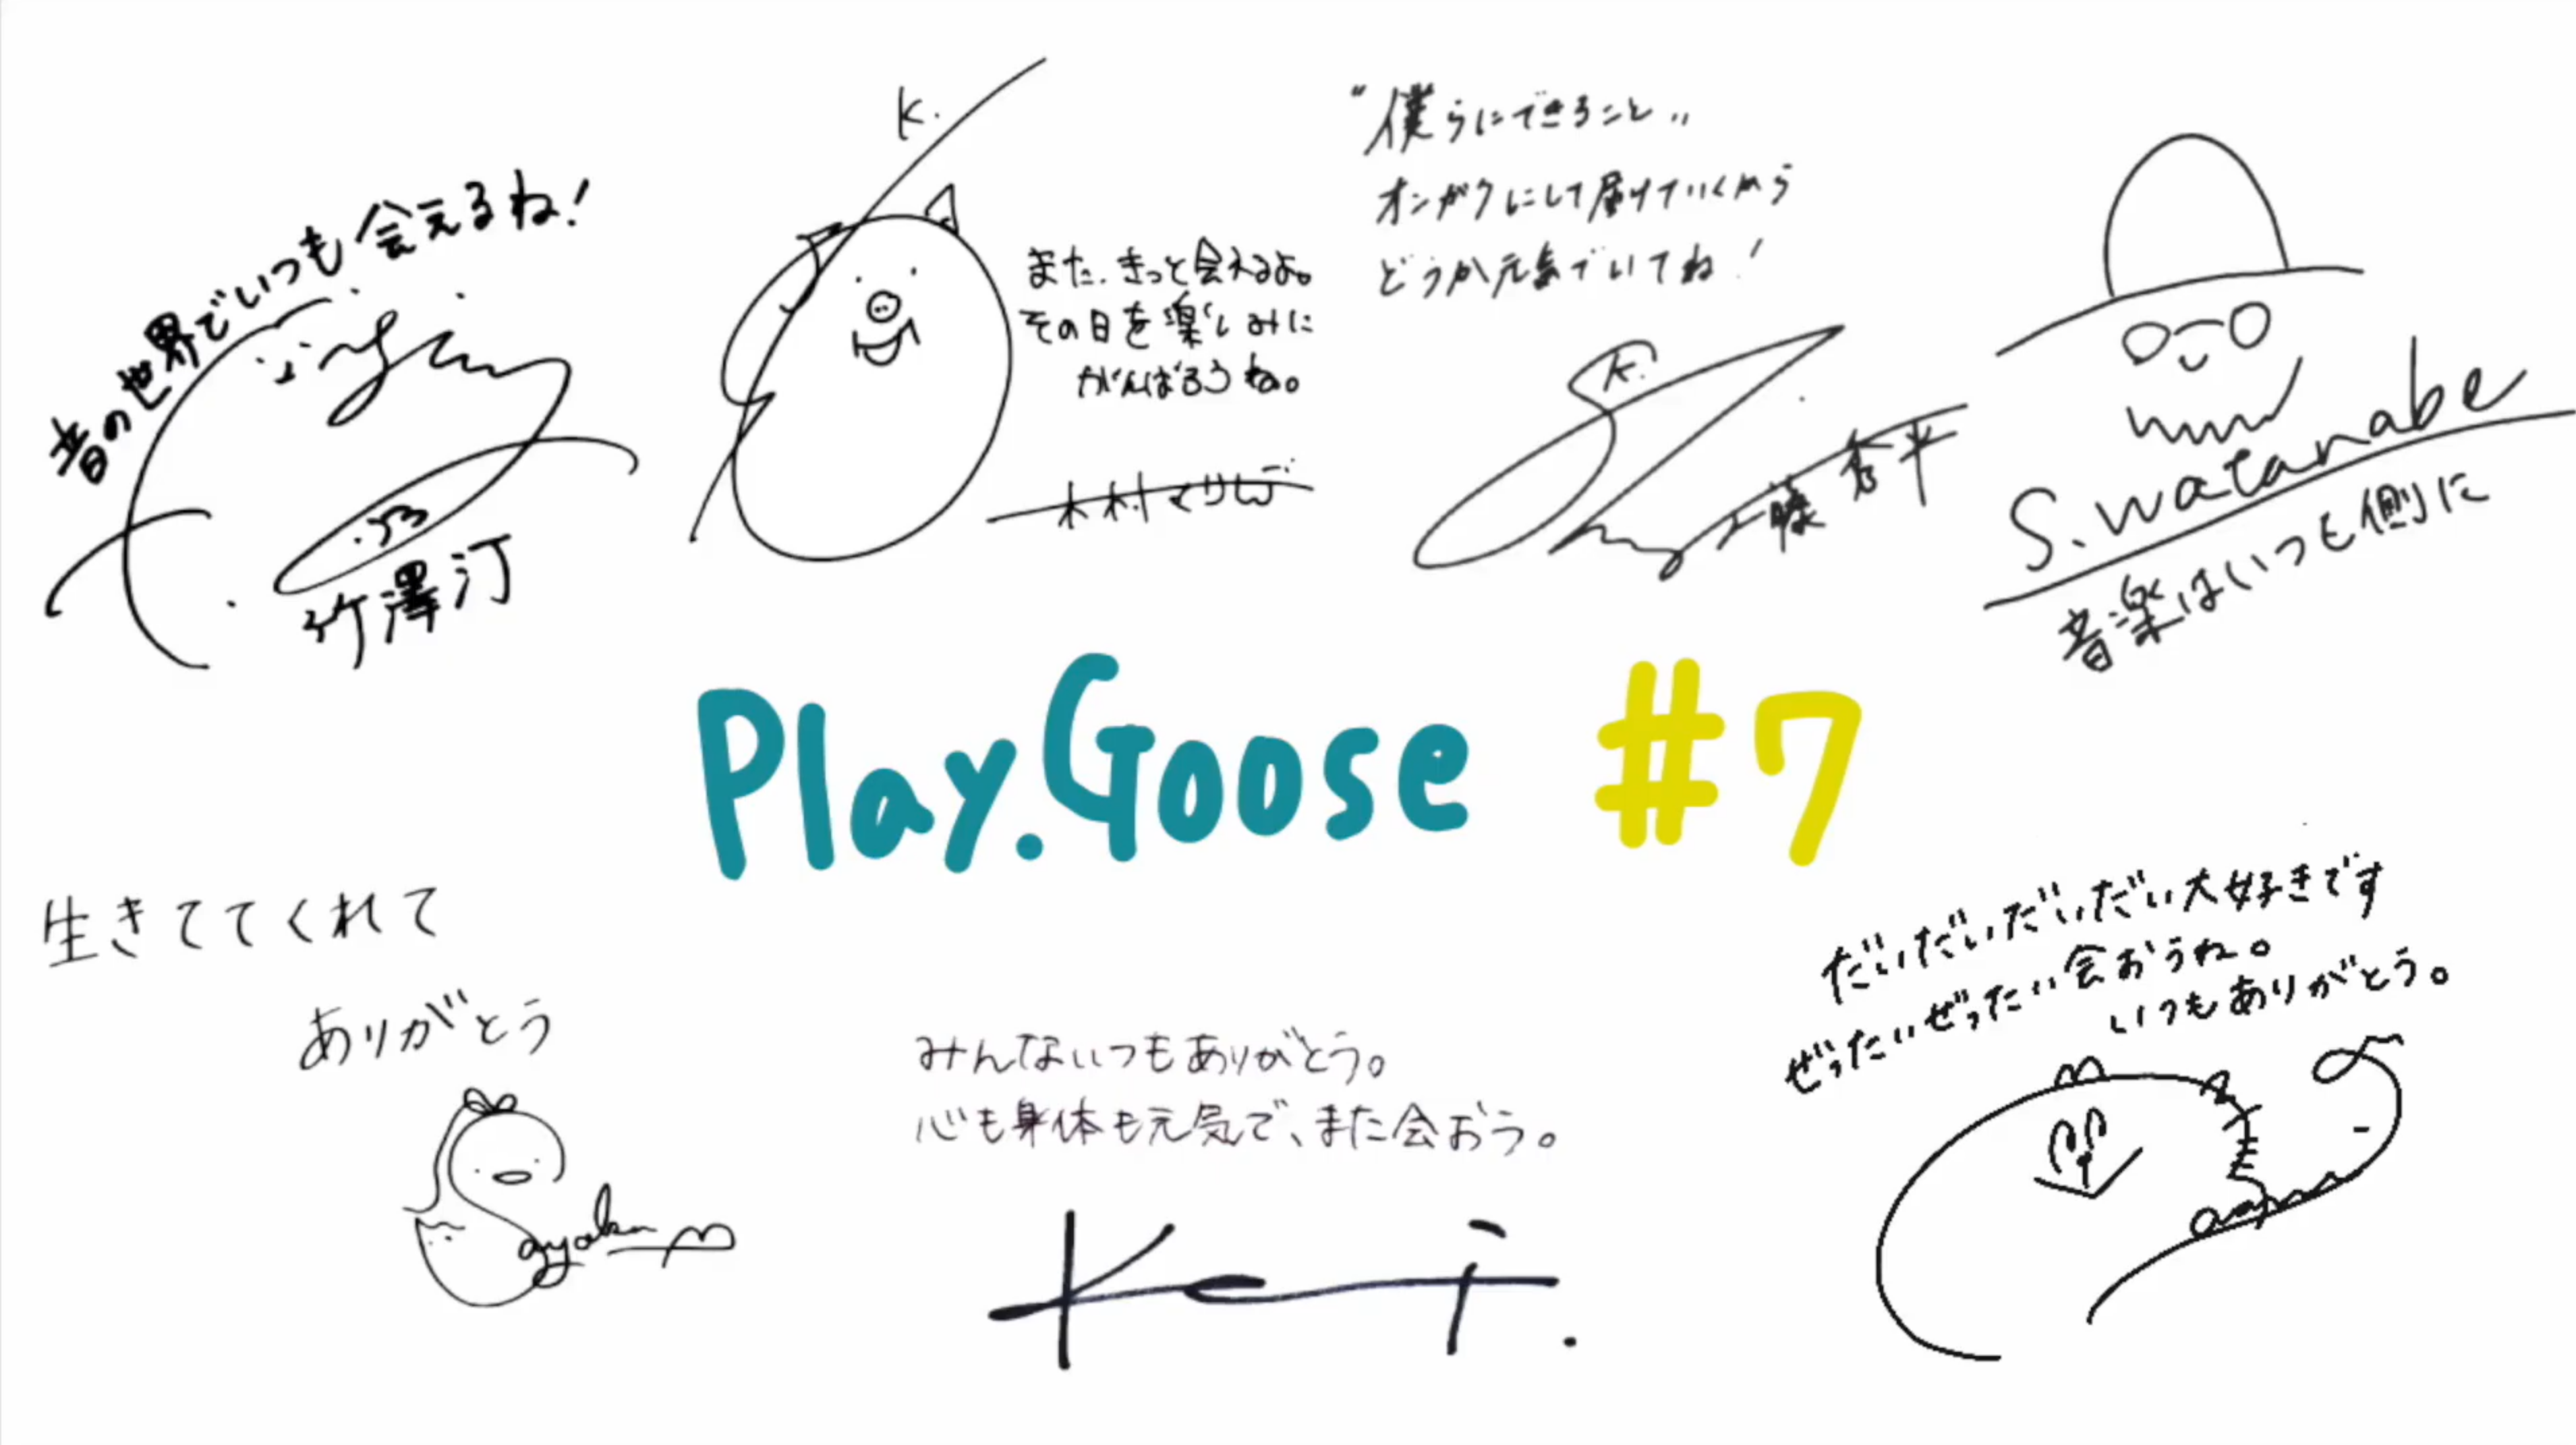 音の世界でいつも会えるね!
竹澤汀
K.
また、きっと会えるよ。
その日を楽しみに
がんばろうね。
木村まりい
"僕らにできること"
オンガクにして届けていくから
どうか元気でいてね!
K.
工藤秀平
S.watanabe
音楽はいつも側に
Play.Goose #7
生きててくれて
ありがとう
ayaka
みんないつもありがとう。
心も身体も元気で、また会おう。
Kei.
だいだいだいだい大好きです
ぜったいぜったい会おうね。
いつもありがとう。